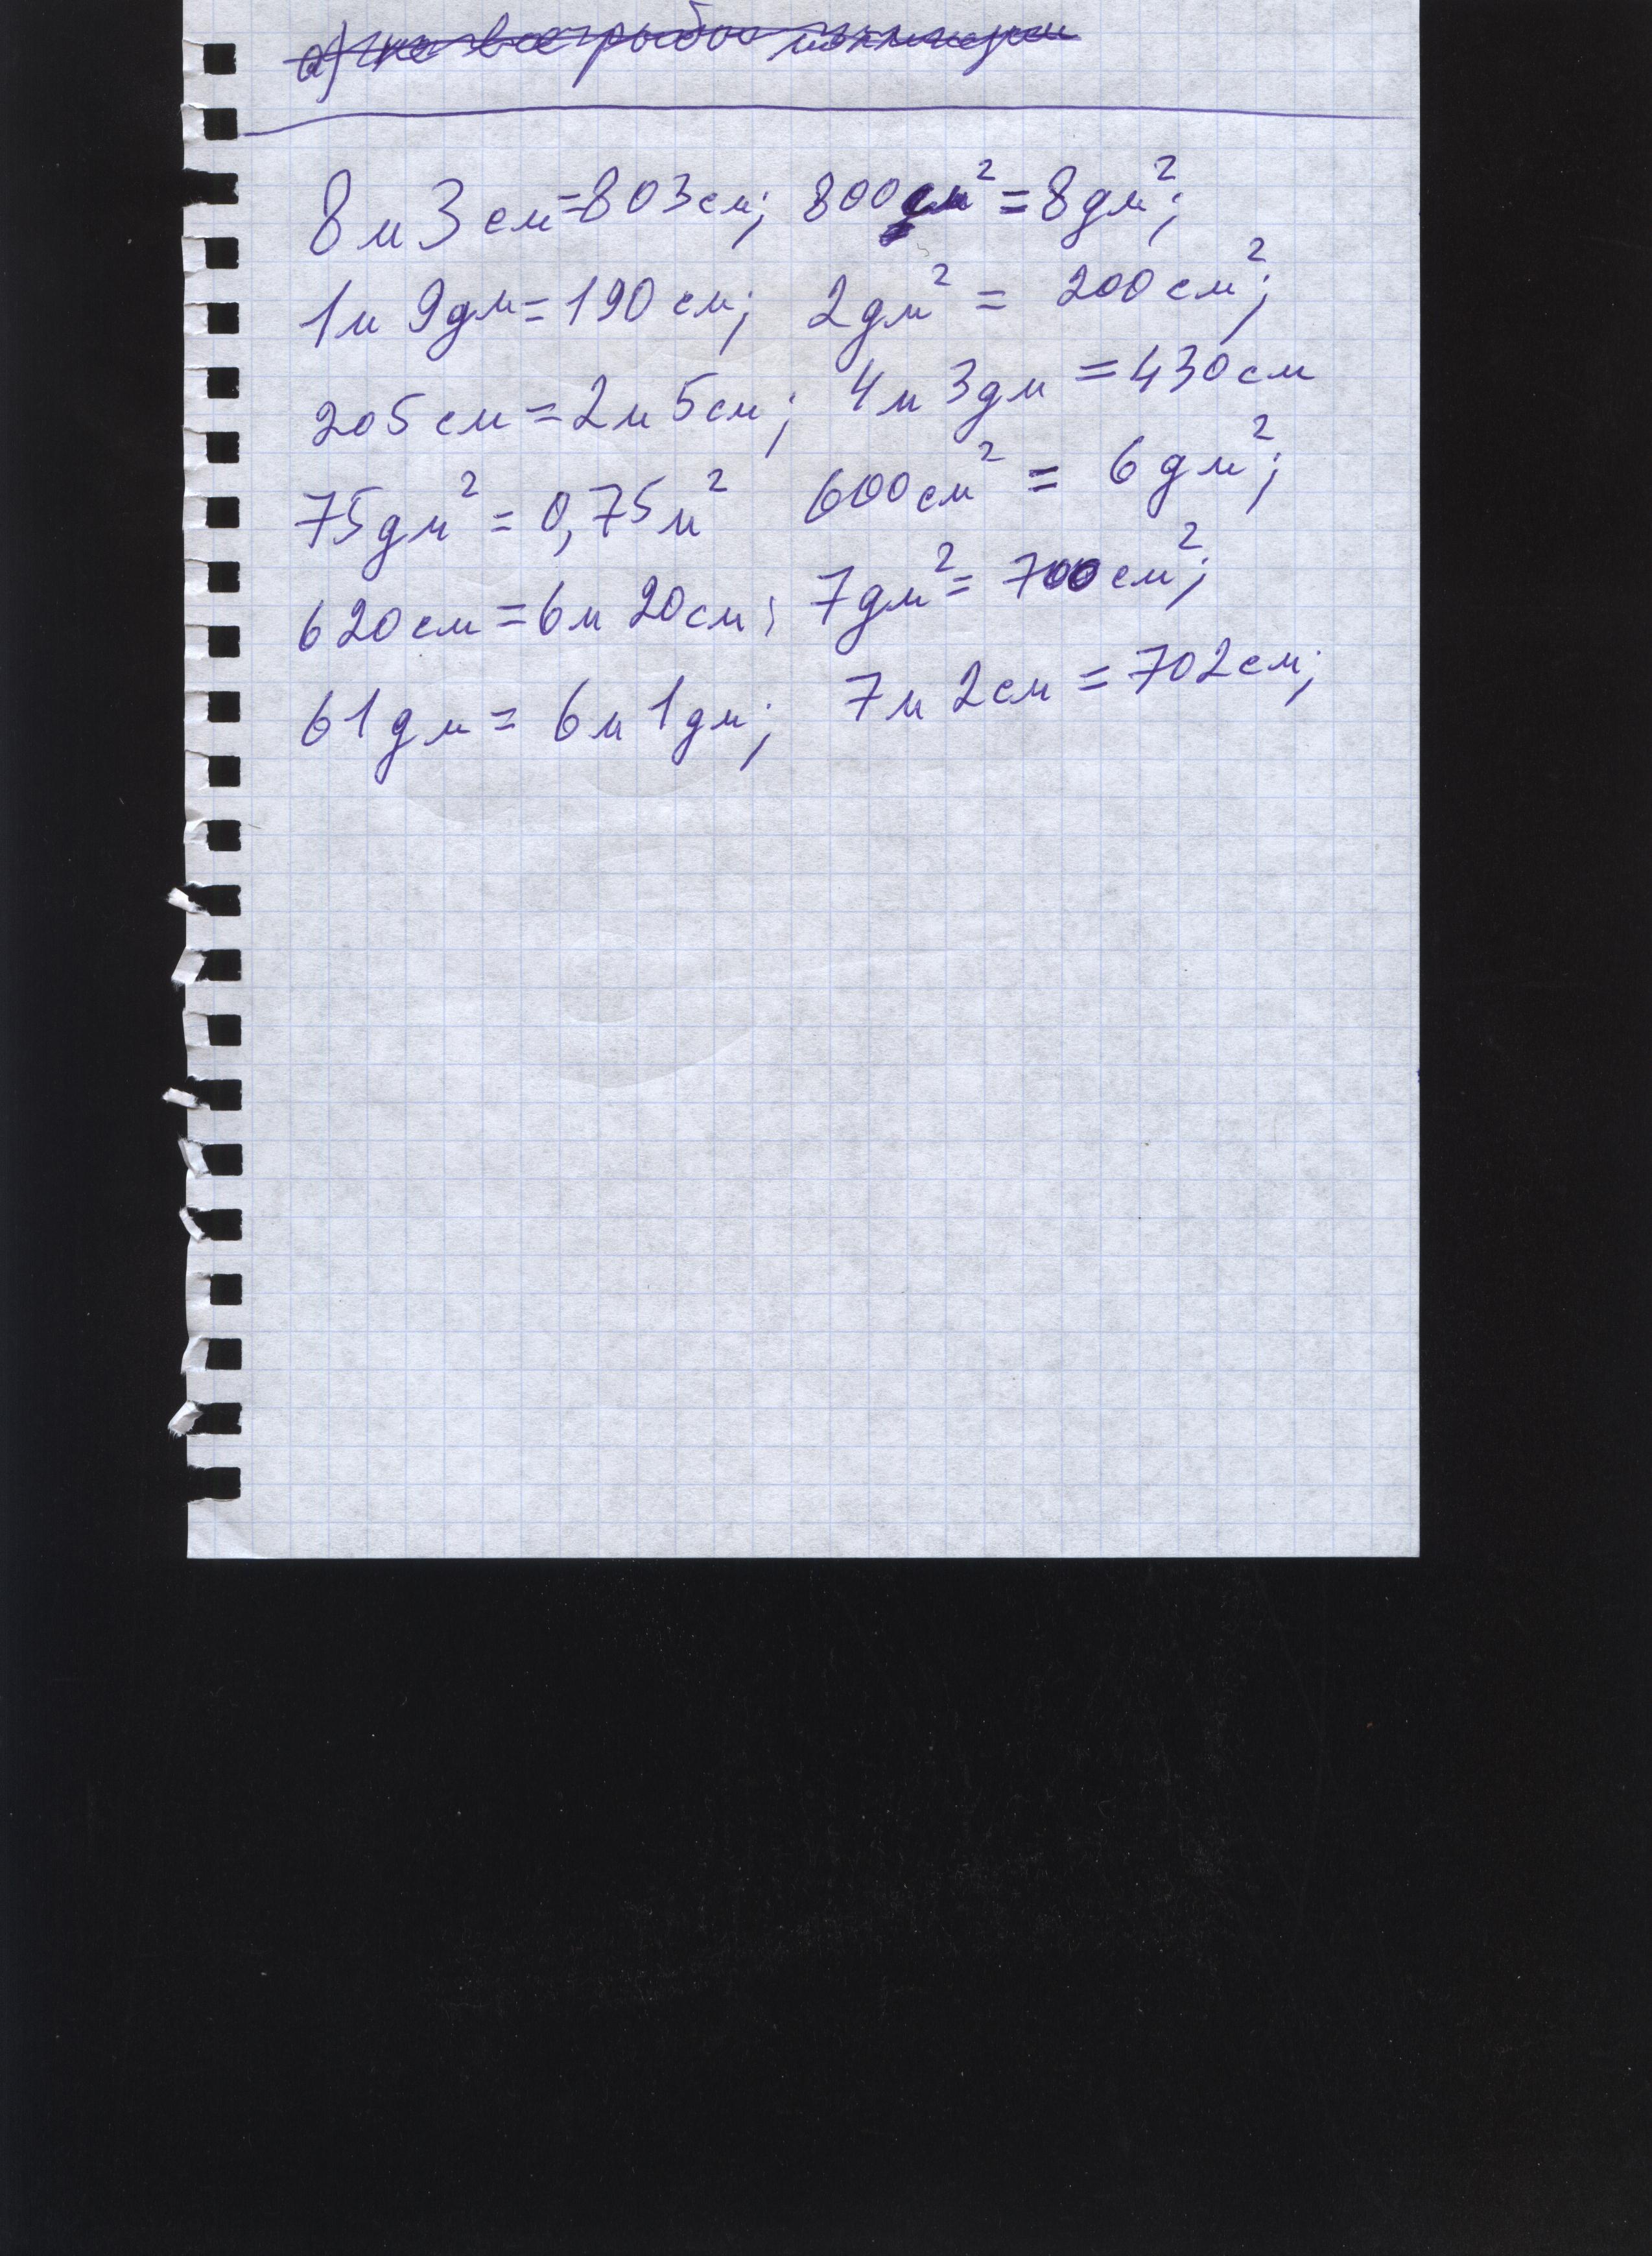 а) не все рыбы
8 м 3 см = 803 см; 800 см² = 8 дм²;
1 м 9 дм = 190 см; 2 дм² = 200 см²;
205 см = 2 м 5 см; 4 м 3 дм = 430 см
75 дм² = 0,75 м² 600 см² = 6 дм²;
620 см = 6 м 20 см; 7 дм² = 700 см²;
61 дм = 6 м 1 дм; 7 м 2 см = 702 см;